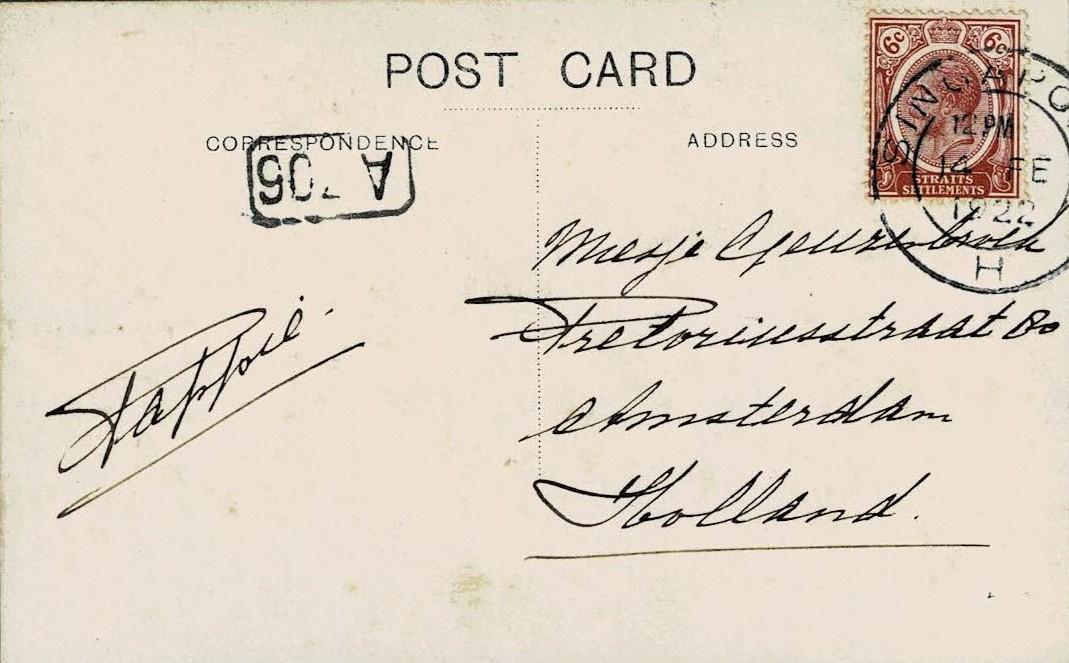 POST CARD
CORRESPONDENCE
ADDRESS
6c 6c
STRAITS
SETTLEMENTS
SINGAPO
12 PM
14 FE
1922
H
A 706
Miesje
Pretoriusstraat 80
Amsterdam
Holland.